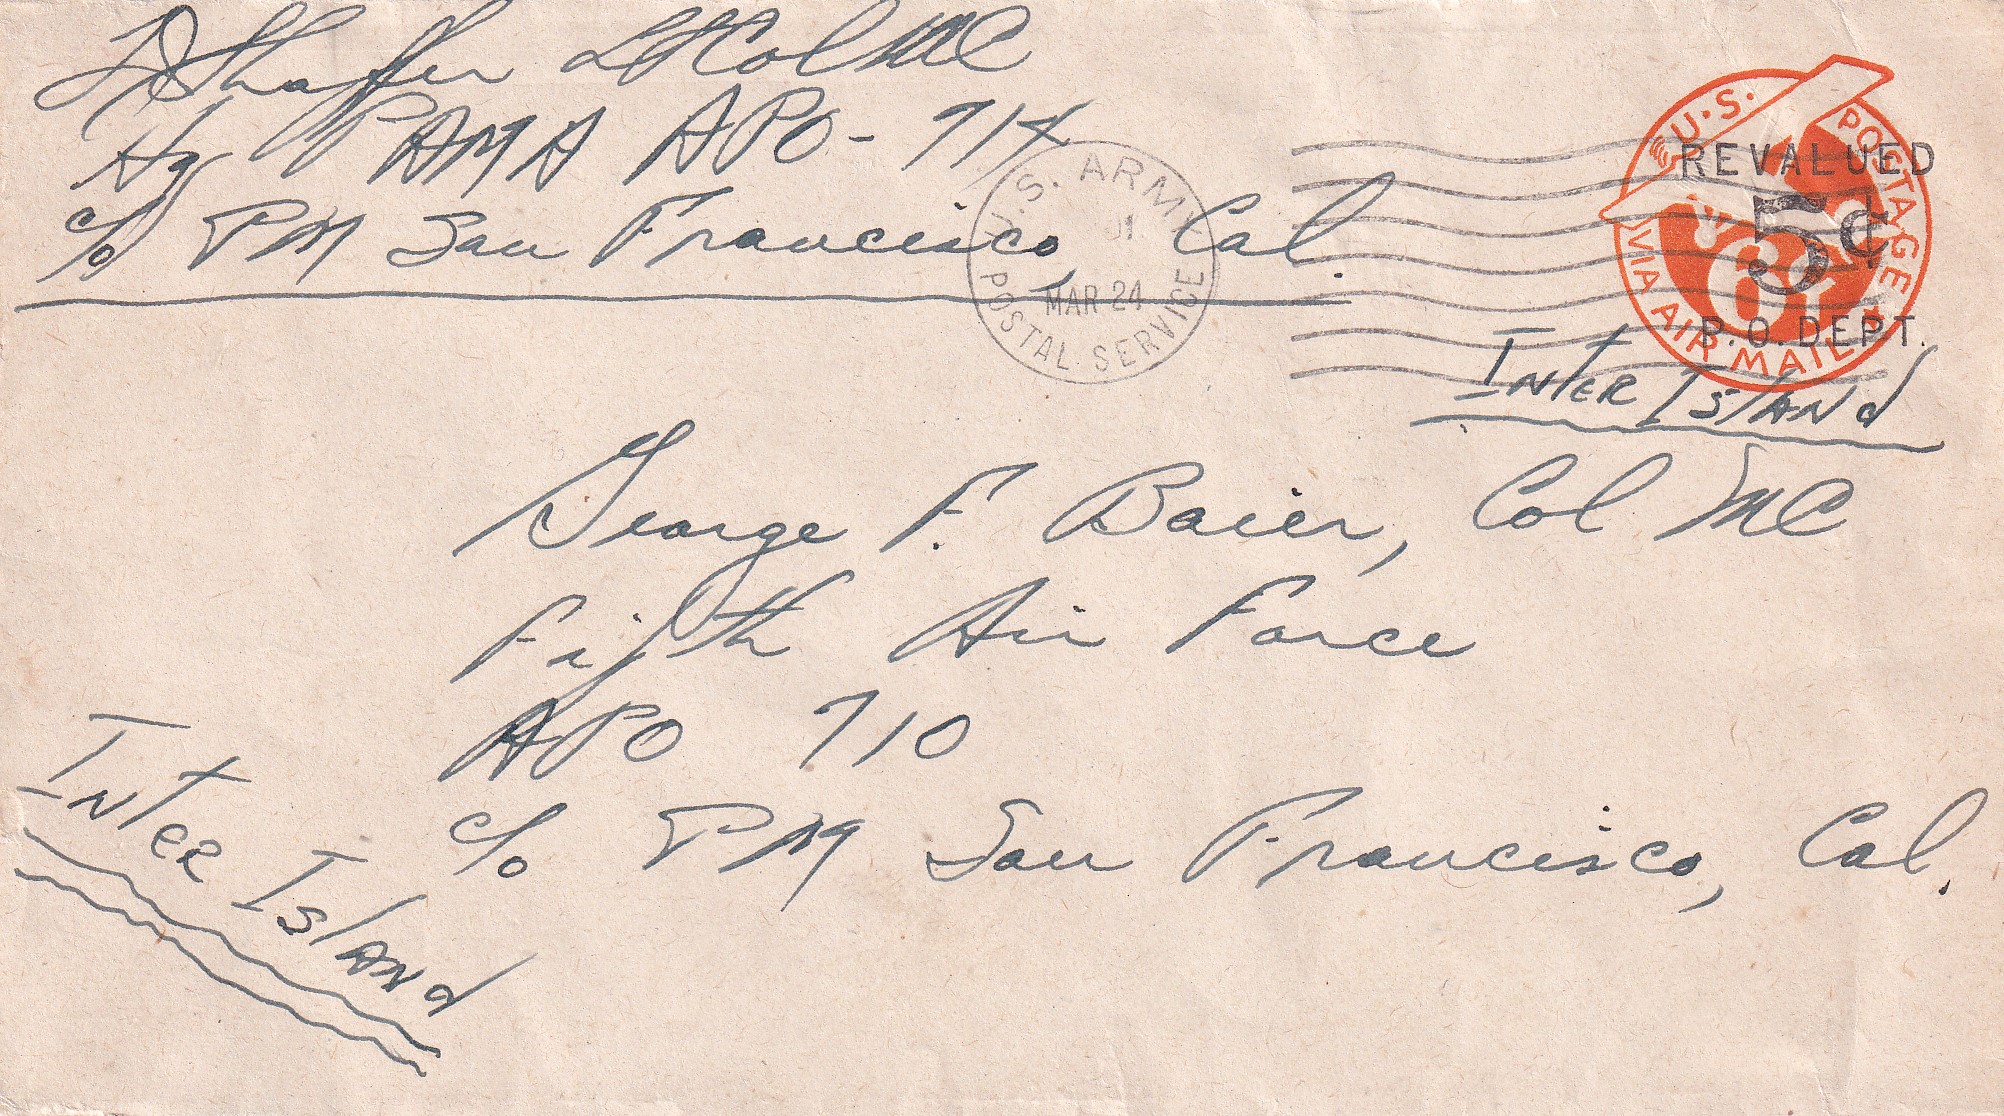 Shaffer Lt Col MC
Hq PAMA APO - 714
c/o PM San Francisco, Cal.
U.S. ARMY
MAR 24
POSTAL SERVICE
U.S. POSTAGE
REVALUED
5¢
6¢
P.O. DEPT.
VIA AIR MAIL
Inter Island
George F. Baier, Col MC
Fifth Air Force
APO 710
c/o PM San Francisco, Cal.
Inter Island